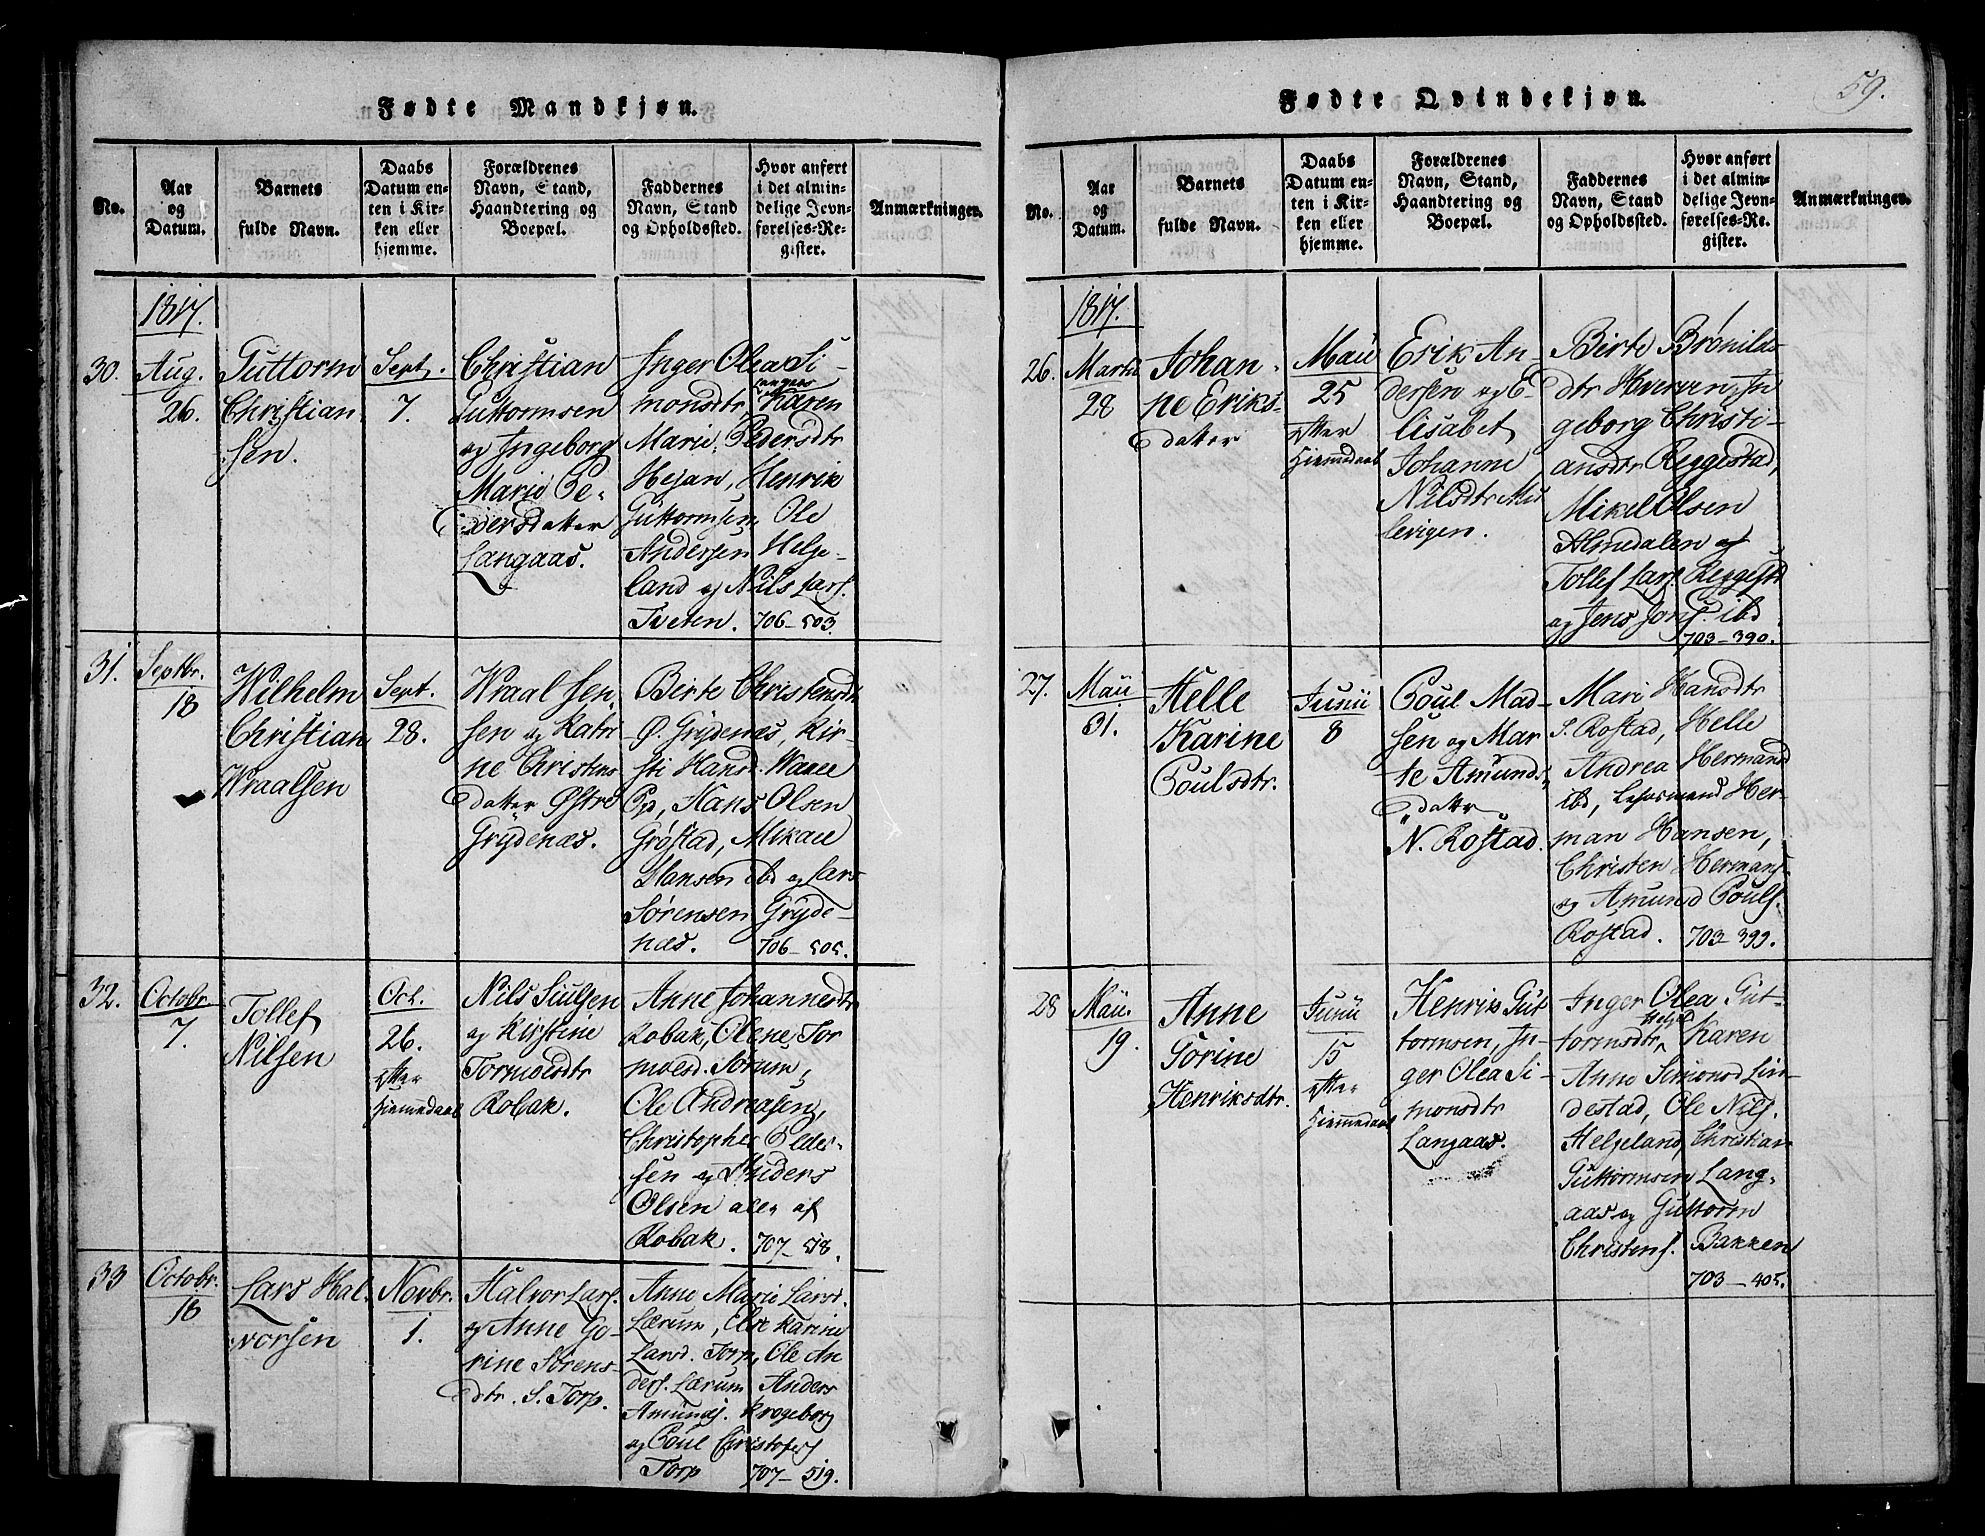 Fødte Mandkjøn.
No.
Aar
og
Datum.
Barnets
fulde Navn.
Daabs
Datum en-
ten i Kir-
ken eller
hjemme.
Forældrenes
Navn, Stand,
Haandtering og
Boepæl.
Faddernes
Navn, Stand
og Opholdssted.
Hvor anført
i det almin-
delige Jevn-
førelses-Re-
gister.
Anmærkninger.
1817.
30.
Aug.
26.
Guttorm
Christian
sen.
Sept.
7.
Christian
Guttormsen
og Ingeborg
Marie Pe-
dersdatter
Langaas.
Inger Olea Si-
monsdtr Langaas Karen
Marie Pedersdtr
Hejan, Henrik
Guttormsen, Ole
Andersen Helge-
land og Nils Lars.
Tveten. 706-503.
31.
Septbr.
18
Wilhelm
Christian
Wraalsen
Sept.
28.
Wraal Jen-
sen og Katri-
ne Christens
datter Østre
Grydenæs.
Birte Christensdt
Ø. Grydenæs, Kir-
sti Hansd.
Hans Olsen
Grøstad, Mikael
Hansen ibd og Lars
Sørensen Gryde-
næs. 706-505.
32.
Octobr.
7.
Tollef
Nilsen
Oct.
26.
efter
Hiemmedaab
Nils Juulsen
og Kirstine
Tormoesdtr
Robak.
Anne Johannesdtr
Robak, Olene Tor
moesd. Torum,
Ole Andreasen,
Christopher Peder-
sen og Anders
Olsen alle af
Robak. 707-518.
33
Octobr.
18
Lars Hal-
vorsen
Novbr.
1.
Halvor Lars.
og Anne Go-
rine Sørens-
dtr. S. Torp.
Anne Marie Larsd.
Lærum, Else Karine
Larsd. Torp, Ole An
ders. Lærum Anders
Amunds. Krogeborg
og Poul Christofers
Torp 707-519.
59.
Fødte Qvindekjøn.
No.
Aar
og
Datum.
Barnets
fulde Navn.
Daabs
Datum en-
ten i Kir-
ken eller
hjemme.
Forældrenes
Navn, Stand,
Haandtering og
Boepæl.
Faddernes
Navn, Stand
og Opholdssted.
Hvor anført
i det almin-
delige Jevn-
førelses-Re-
gister.
Anmærkninger.
1817.
26.
Martii
28
Johan-
ne Eriks-
datter
Maii
25
efter
Hiemmedaab
Erik An-
dersen og E-
lisabet
Johanne
Nilsdtr
levigen.
Birte Brønilds
dtr Hverven, In
geborg Christi-
ansdtr Reggestad,
Mikel Olsen
Almedalen og
Tollef Lars. Reggestd
og Jens Jons. ibd
703-390.
27.
Maii
31.
Helle
Karine
Poulsdtr.
Junii
8
Poul Mad-
sen og Mar-
te Amunds
datter
N. Rostad.
Mari Hansdtr
S. Rostad, Helle
Andrea Hermansd
ibd, Lehnsmand Her-
man Hansen,
Christen Hermans.
og Amund Pouls.
Rostad. 703-399.
28
Maii.
19.
Anne
Gorine
Henriksdtr.
Junii
15
efter
Hiemmedaab
Henrik Gut-
tormsen, In-
ger Olea Si-
monsdtr
Langaas.
Inger Olea Gut-
tormsdtr, Helgel. Karen
Anne Simonsd Lin-
destad, Ole Nils.
Helgeland, Christian
Guttormsen Lang-
aas og Guttorm
Christens. Bakken
703-405.